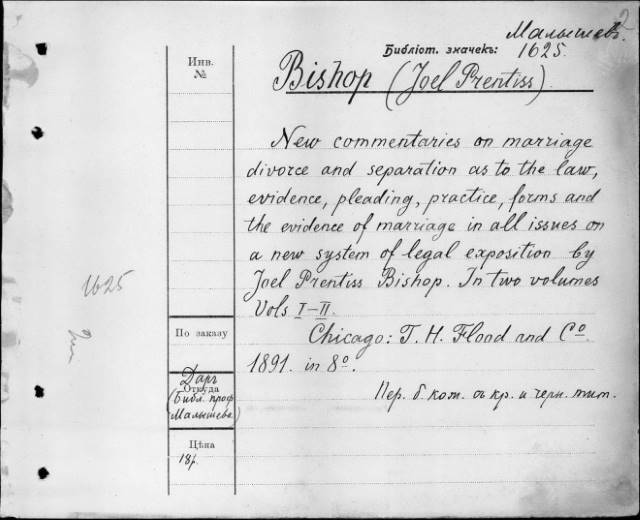 2
Малышев.
Библіот. значекъ: 1625.
Инв.
№
Bishop (Joel Prentiss)
New commentaries on marriage
divorce and separation as to the law,
evidence, pleading, practice, forms and
the evidence of marriage in all issues on
a new system of legal exposition by
Joel Prentiss Bishop. In two volumes
Vols I–II.
Chicago: T. H. Flood and Cº
1891. in 8º.
Пер. б. кож. съ кр. и черн. тит.
1625
По заказу
Даръ
Откуда
(Библ. проф.
Малышева)
Цѣна
18р.